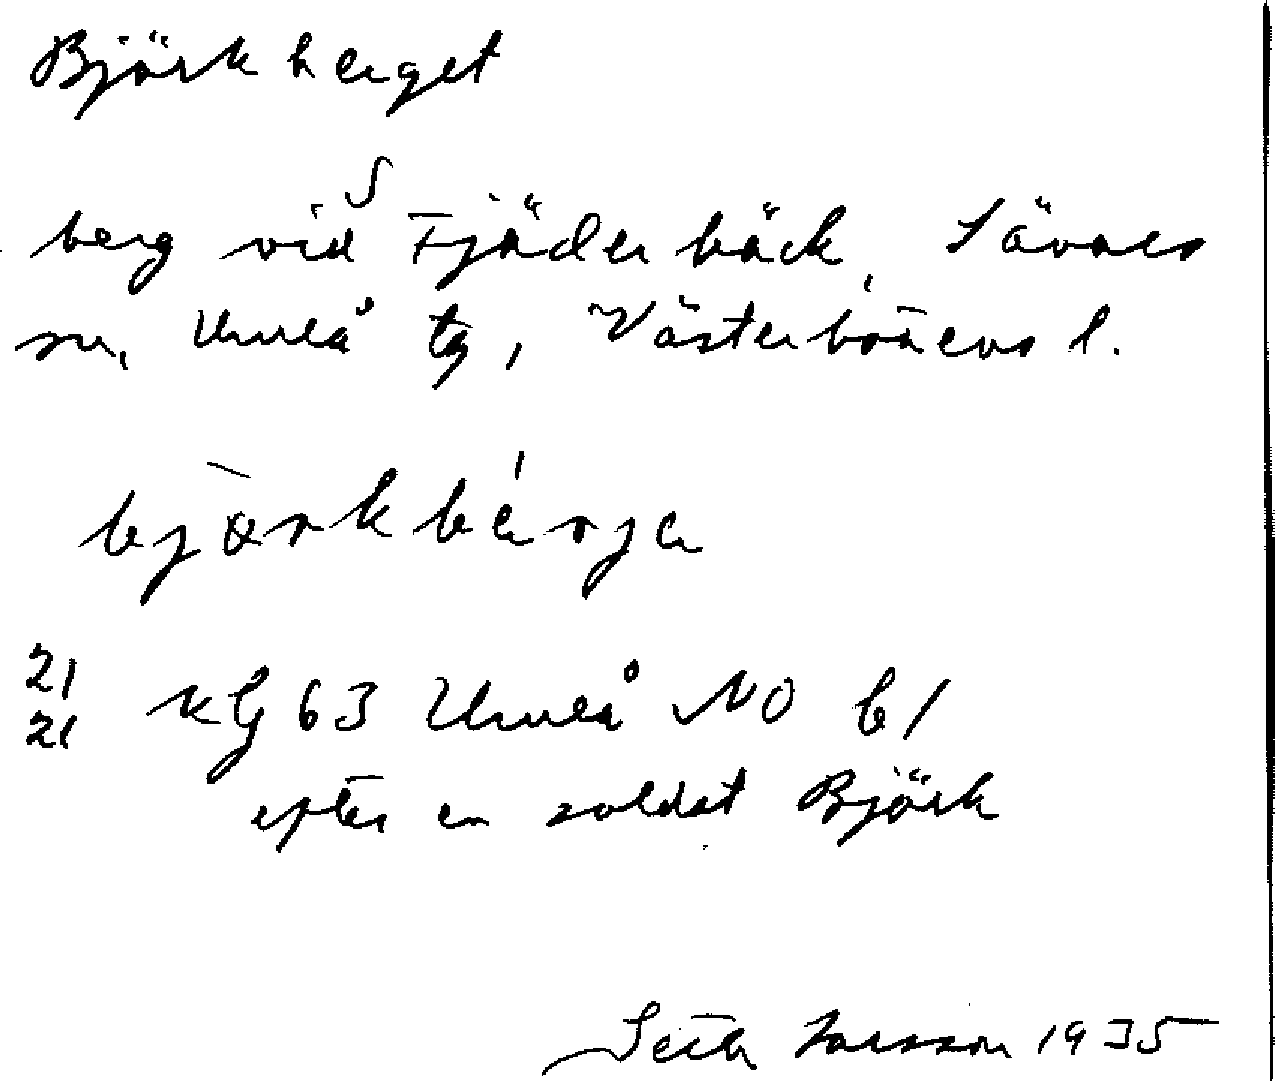 Björkberget
berg vid Fjäderbäck, Sävars
sn, Umeå tg, Västerbottens l.
bjö̀rkbárja
21
21 kG 63 Umeå NO b1
efter en soldat Björk
Seth Larsson 1935